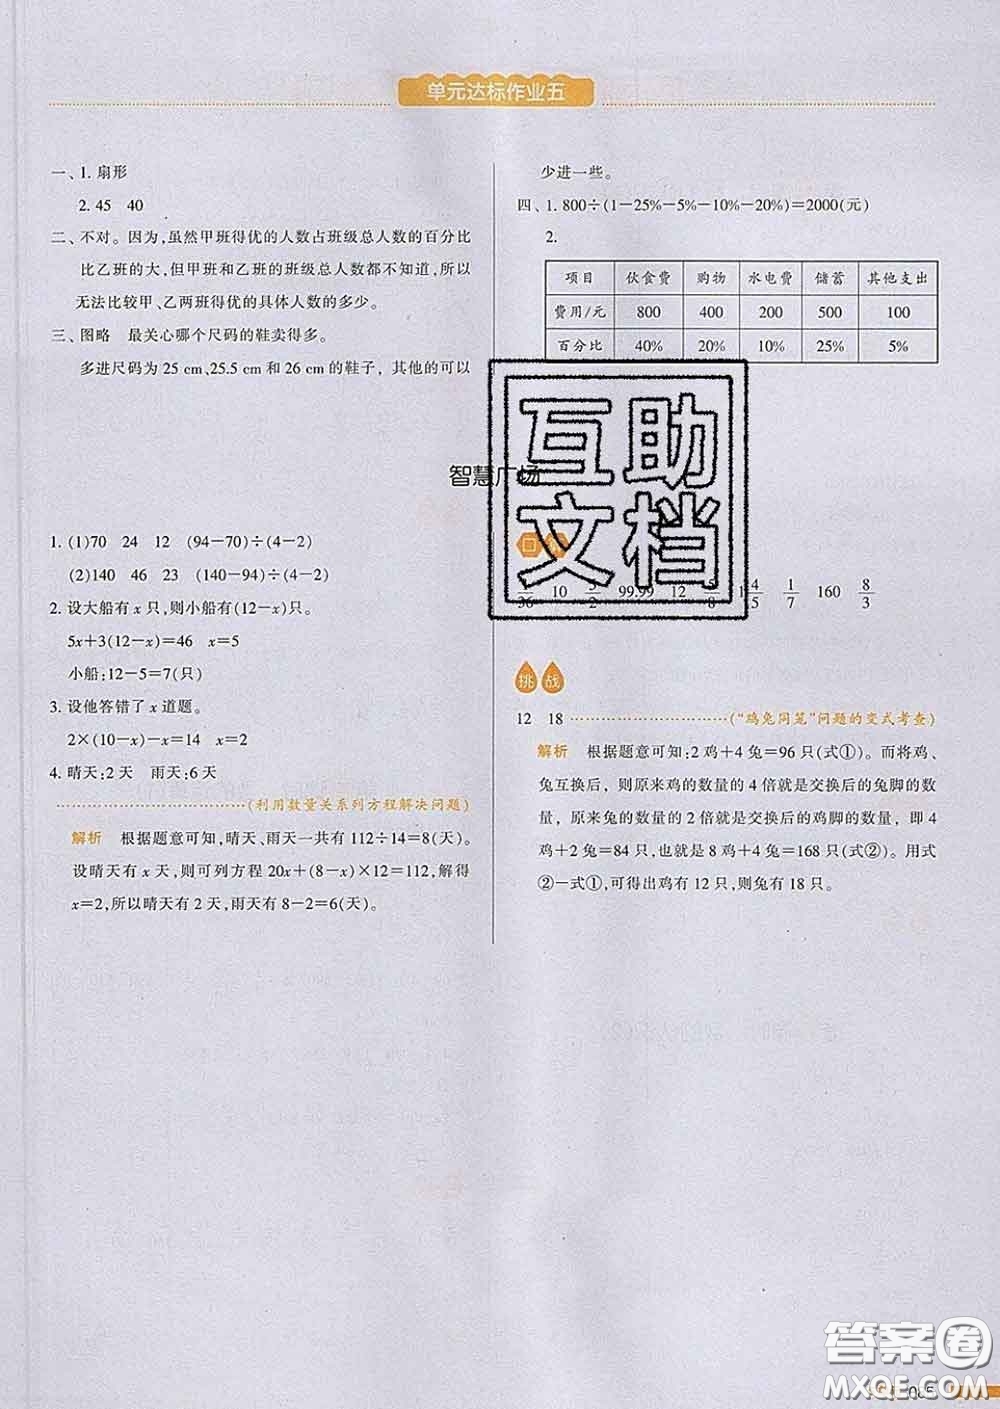 单元达标作业五
一、1. 扇形
2. 45 40
二、不对。因为,虽然甲班得优的人数占班级总人数的百分比
比乙班的大,但甲班和乙班的班级总人数都不知道,所以
无法比较甲、乙两班得优的具体人数的多少。
三、图略 最关心哪个尺码的鞋卖得多。
多进尺码为 25 cm、25.5 cm 和 26 cm 的鞋子，其他的可以
少进一些。
四、1. 800÷(1−25%−5%−10%−20%)=2000(元)
2.
项目 伙食费 购物 水电费 储蓄 其他支出
费用/元 800 400 200 500 100
百分比 40% 20% 10% 25% 5%
智慧广场
1. (1)70 24 12 (94−70)÷(4−2)
(2)140 46 23 (140−94)÷(4−2)
2. 设大船有 x 只,则小船有(12−x)只。
5x+3(12−x)=46 x=5
小船:12−5=7(只)
3. 设他答错了 x 道题。
2×(10−x)−x=14 x=2
4. 晴天:2 天 雨天:6 天
(利用数量关系列方程解决问题)
解析 根据题意可知,晴天、雨天一共有 112÷14=8(天)。
设晴天有 x 天,则可列方程 20x+(8−x)×12=112,解得
x=2,所以晴天有 2 天,雨天有 8−2=6(天)。
口
36 10 5/2 99.99 12 5/8 4/5 1/7 160 8/3
挑战
12 18 (“鸡兔同笼”问题的变式考查)
解析 根据题意可知:2 鸡+4 兔=96 只(式①)。而将鸡、
兔互换后，则原来鸡的数量的 4 倍就是交换后的兔脚的数
量，原来兔的数量的 2 倍就是交换后的鸡脚的数量，即 4
鸡+2 兔=84 只,也就是 8 鸡+4 兔=168 只(式②)。用式
②−式①,可得出鸡有 12 只,则兔有 18 只。
互助
文档
答案圈
MXQE.COM
085